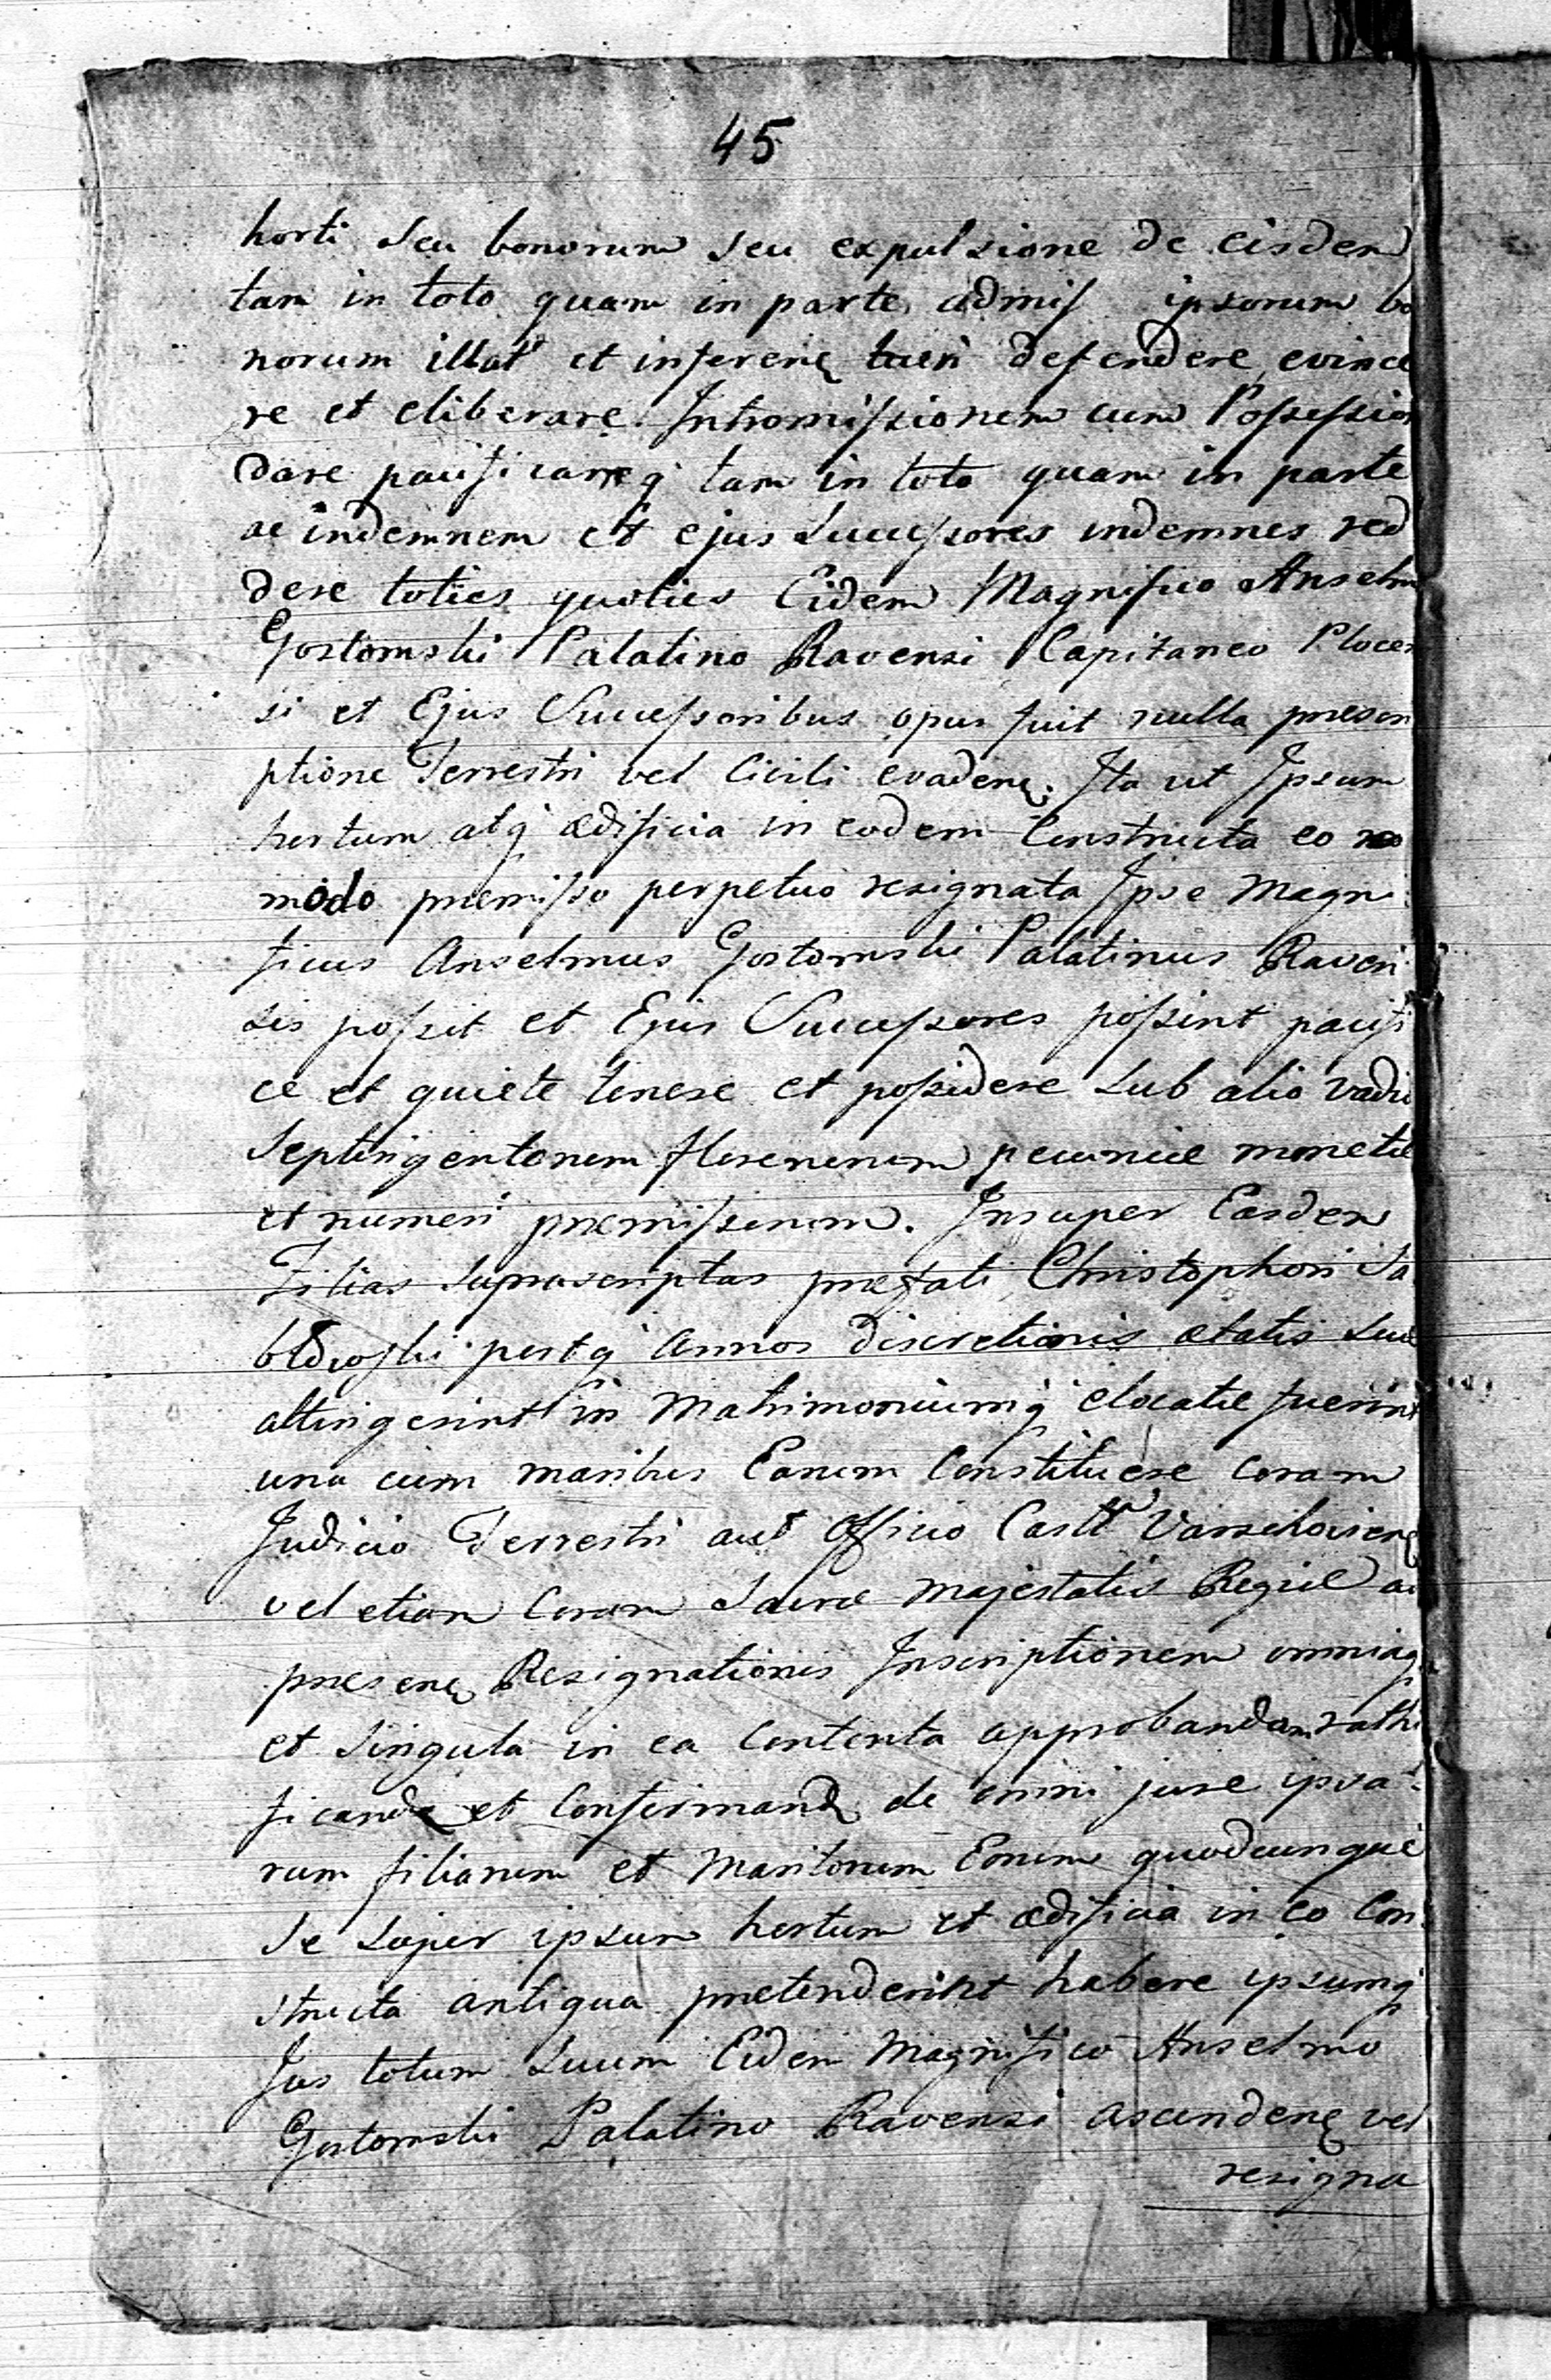 45
horti seu bonorum seu expulsione de eisdem
tam in toto quam in parte admis ipsorum bo
norum illat et inferenę tueri defendere evince
re et eliberare. Intromissionem cum Possession
dare pacificareq̃ tam in toto quam in parte
ac indemnem et ejus Successores indemnes red
dere toties quoties Eidem Magnifico Anselmo
Gostomski Palatino Ravensi Capitaneo Plocen
si et Ejus Successoribus opus fuit nulla prescri
ptione Terrestri vel Civili evadenę. Ita ut Ipsum
hortum atq̃ ædificia in eodem Constructa eo
modo premisso perpetuo resignata Ipse Magni
ficus Anselmus Gostomski Palatinus Raven
sis possit et Ejus Successores possint pacifi
ce et quiete tenere et possidere sub alio vadio
Septingentorum florenorum pecuniæ monetæ
et numeri premissorum. Insuper Easdem
Filias suprascriptas prefati Christophori Ja
postq̃ annos discretionis ætatis suæ
attingerint in Matrimoniumq̃ elocatæ fuerint
una cum maritus Earum Constituere coram
Judicio Terrestri aut Officio Castr Varschoviene
vel etiam Coram Sacræ Majestatis Regiæ ac
presenę Resignationis Inscriptionem omniaq̃
et Singula in ea Contenta approbandam rathi
ficandę et Confirmandę de omni jure ipsa
rum filiarum et Maritorum Eorum quodcunque
se super ipsum hortum et ædificia in eo Con
structa antiqua pretenderint habere ipsumq̃
Jus totum Suum Eidem Magnifico Anselmo
Gostomski Palatino Ravensi ascendenę vel
resigna